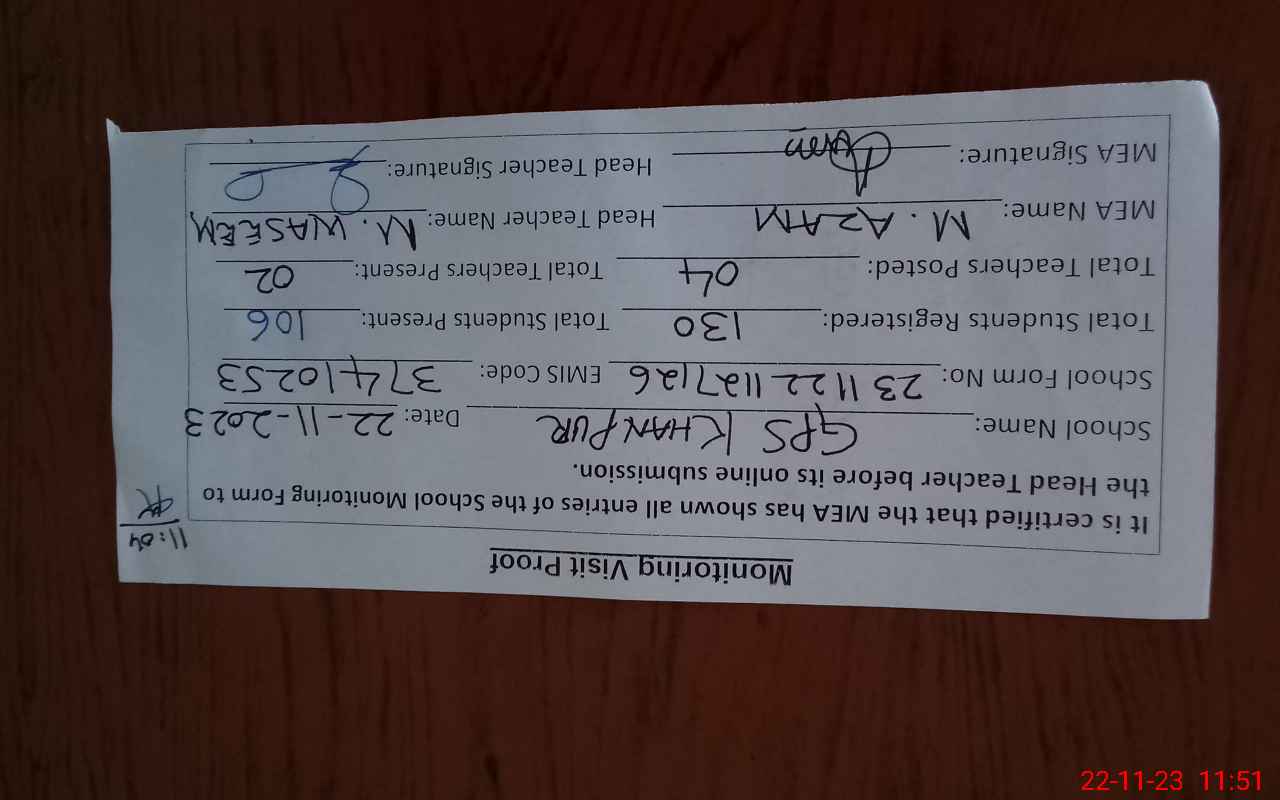 Monitoring Visit Proof
11:04
It is certified that the MEA has shown all entries of the School Monitoring Form to
the Head Teacher before its online submission.
School Name: GPS KHANPUR Date: 22-11-2023
School Form No: 2311221127126 EMIS Code: 37410253
Total Students Registered: 130 Total Students Present: 106
Total Teachers Posted: 04 Total Teachers Present: 02
MEA Name: M. AZAM Head Teacher Name: M. WASEEM
MEA Signature: Head Teacher Signature:
22-11-23 11:51